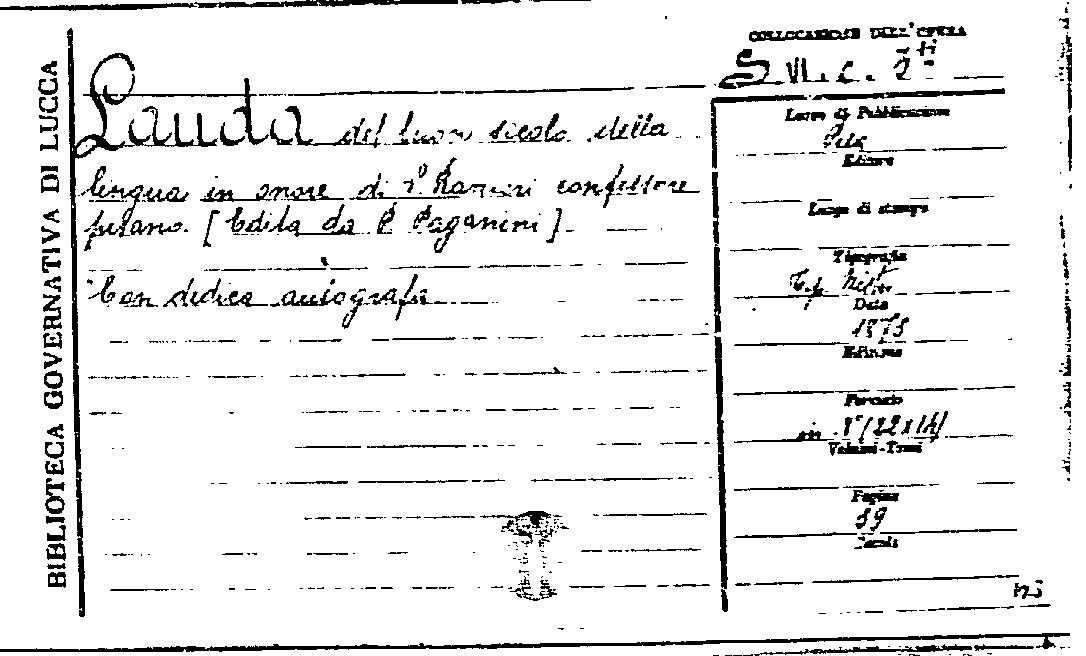 BIBLIOTECA GOVERNATIVA DI LUCCA
Lauda del buon secolo della
lingua in onore di S. Ranieri confessore
pisano. [Edita da P. Paganini].
Con dedica autografa
COLLOCAZIONE DELL'OPERA
Luogo di Pubblicazione
Pisa
Editore
Luogo di stampa
Tipografia
Tip. Nistri
Data
Edizione
Formato
in 8° (22x14)
Volumi-Tomi
Pagine
39